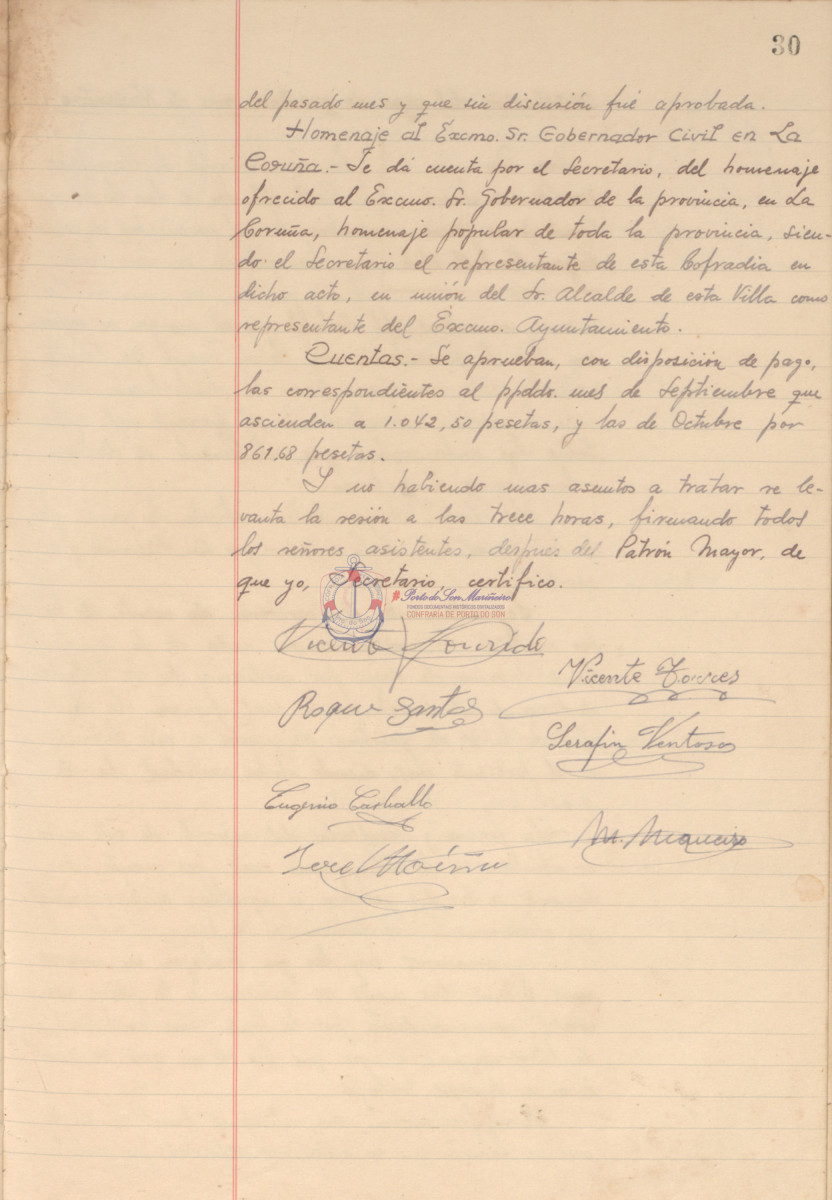 30
del pasado mes y que sin discusión fué aprobada.
Homenaje al Excmo. Sr. Gobernador Civil en La
Coruña.- Se dá cuenta por el Secretario, del homenaje
ofrecido al Excmo. Sr. Gobernador de la provincia, en La
Coruña, homenaje popular de toda la provincia, sien-
do el Secretario el representante de esta Cofradia en
dicho acto, en unión del Sr. Alcalde de esta Villa como
representante del Excmo. Ayuntamiento.
Cuentas.- Se aprueban, con disposición de pago,
las correspondientes al ppddo. mes de Septiembre que
ascienden a 1.042,50 pesetas, y las de Octubre por
861,68 pesetas.
Y no habiendo mas asuntos a tratar se le-
vanta la sesión a las trece horas, firmando todos
los señores asistentes, después del Patrón Mayor, de
que yo, Secretario, certifico.
Porto do Son Mariñeiro
FONDOS DOCUMENTAIS HISTÓRICOS DIXITALIZADOS
CONFRARÍA DE PORTO DO SON
Vicente
Vicente Torres
Roque Santos
Serafin Ventoso
Eugenio Carballo
M. Maneiro